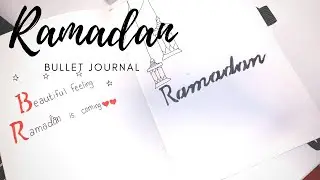 Ramadan
BULLET JOURNAL
Beautiful feeling
Ramadan is coming
Ramadan